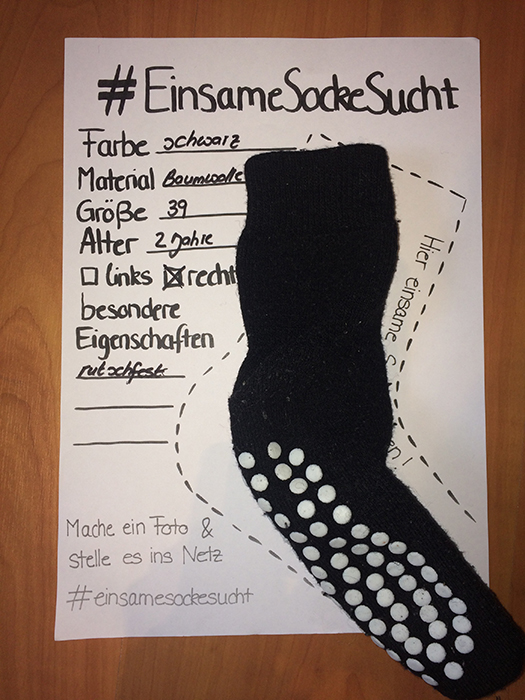 #EinsameSockeSucht
Farbe schwarz
Material Baumwolle
Größe 39
Alter 2 Jahre
links recht
besondere
Eigenschaften
rutschfest
Hier einsame
Mache ein Foto &
stelle es ins Netz
#einsamesockesucht